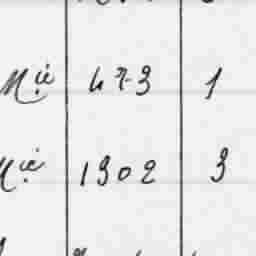 Mic 473 1
Mic 1902 3